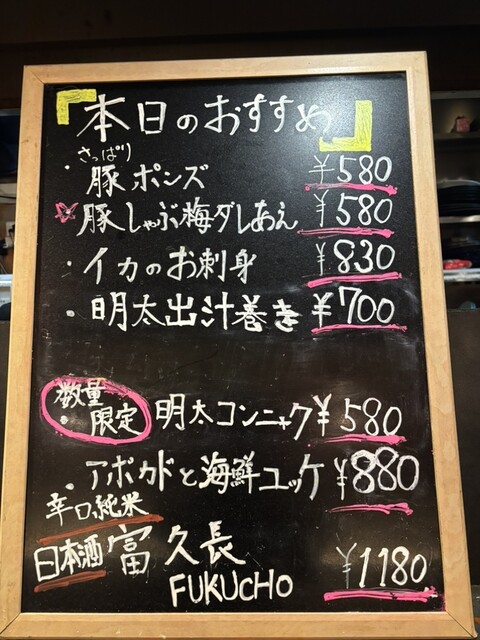 「本日のおすすめ」
さっぱり
・豚ポンズ ¥580
豚しゃぶ梅ダレあえ ¥580
・イカのお刺身 ¥830
・明太出汁巻き ¥700
数量
限定
・明太コンニャク ¥580
・アボカドと海鮮ユッケ ¥880
辛口純米
日本酒 富久長 ¥1180
FUKUCHO